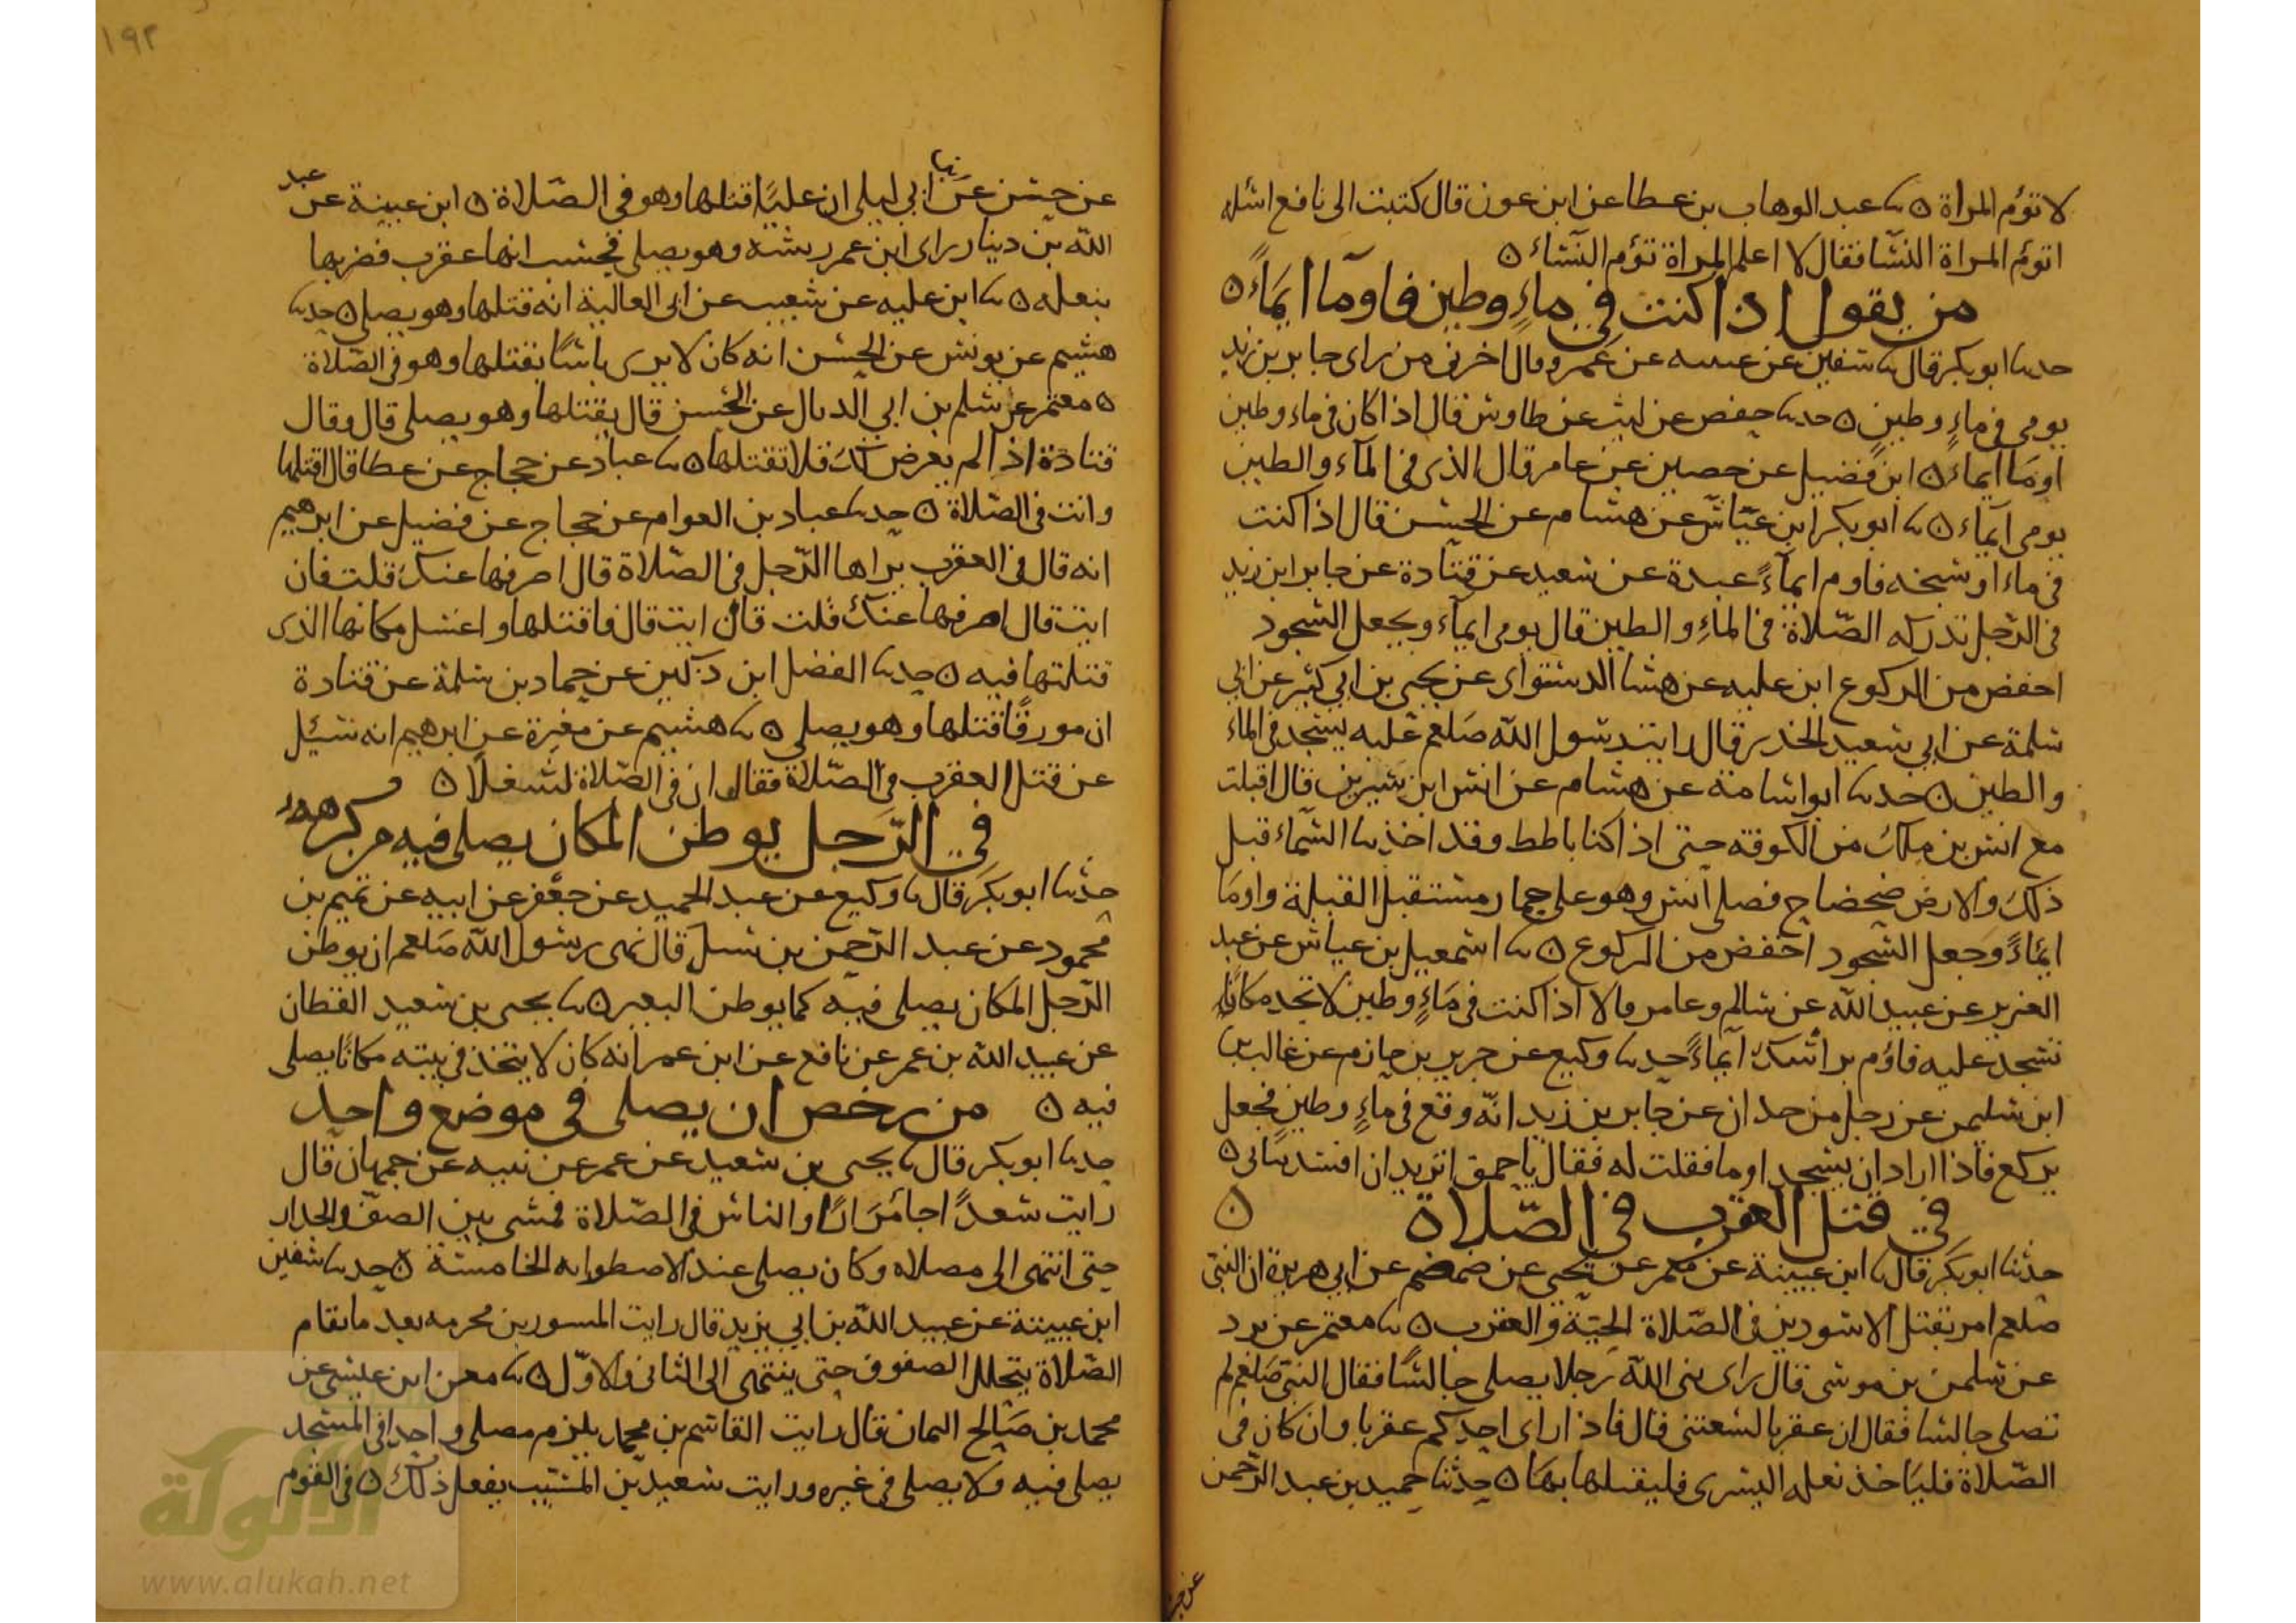 لا تؤم المراة ٥ نا عبد الوهاب بن عطا عن ابن عون قال كتبت الى نافع اسله
اتؤم المراة النسا فقال لا اعلم المراة تؤم النساء ٥
من يقول اذا كنت في ماء وطين فاومآ ايماءً ٥
حدثنا ابو بكر قال نا سفين عن عيينه عن عمرو قال اخبرني من راى جابر بن زيد
يومى فى ماء وطين ٥ حدثنا حفص عن ليث عن طاوس قال اذا كان فى ماء وطين
اومأ ايماء ٥ ابن فضيل عن حصين عن عامر قال الذى فى المآء والطين
يومى ايماء ٥ نا ابو بكر ابن عياش عن هشام عن الحسن قال اذا كنت
فى ماء او سبخه فاوم ايمآءً عبدة عن سعيد عن قتادة عن جابر ابن زيد
فى الرجل تدركه الصلاة فى الماء والطين قال يومى ايمآء ويجعل السجود
اخفض من الركوع ابن عليه عن هشا الدستواى عن يحيى بن ابى كثير عن ابى
سلمة عن ابي سعيد الخدير قال رايت رسول الله صلعم عليه يسجد فى الماء
والطين ٥ حدثنا ابو اسامة عن هشام عن انس ابن سيرين قال اقبلت
مع انس بن ملك من الكوفة حتى اذا كنا باطط وقد اخذتنا السماء قبل
ذلك والارض ضحضاح فصلى انس وهو على حمار مستقبل القبلة واومأ
ايماءً وجعل السجود اخفض من الركوع ٥ نا اسمعيل بن عياش عن عبد
العزيز عن عبيد الله عن سالم وعامر قالا اذا كنت فى ماءٍ وطين لا تجد مكانا
تسجد عليه فاوم براسك ايماءً حدثنا وكيع عن جرير بن حازم عن غالب بن
ابن سليمن عن رجل من حدان عن جابر بن زيد انه وقع فى ماءٍ وطين فجعل
يركع فاذا اراد ان يسجد اومأ فقلت له فقال يا حمق اتريد ان افسد ثيابى ٥
في قتل العقرب في الصلاة ٥
حدثنا ابو بكر قال نا ابن عيينة عن معمر عن يحيى عن ضمضم عن ابى هريرة ان النبى
صلعم امر بقتل الاسودين فى الصلاة الحية والعقرب ٥ نا معتمر عن برد
عن سلمن بن موسى قال راى نبى الله رجلا يصلى جالسا فقال النبى صلعم لم
تصلى جالسا فقال ان عقربا لسعتنى قال فاذا راى احدكم عقربا وان كان فى
الصلاة فلياخذ نعله اليسرى فليقتلها بها ٥ حدثنا حميد بن عبد الرحمن
١٩٢
عن حسن عن ابي ليلى ان عليًا قتلها وهو فى الصلاة ٥ ابن عيينة عن عبد
الله بن دينار راى ابن عمر ريشة وهو يصلى فحسب انها عقرب فضربها
بنعله ٥ نا ابن عليه عن شعيب عن ابى العالية انه قتلها وهو يصلى ٥ حدثنا
هشيم عن يونس عن الحسن انه كان لا يرى باسًا بقتلها وهو فى الصلاة
٥ معتمر عن سلم بن ابي الديال عن الحسن قال يقتلها وهو يصلى قال وقال
قتادة اذا لم يعرض لك فلا تقتلها ٥ نا عباد عن حجاج عن عطا قال اقتلها
وانت فى الصلاة ٥ حدثنا عباد بن العوام عن حجاج عن فضيل عن ابرهيم
انه قال فى العقرب يراها الرجل فى الصلاة قال اصرفها عنك قلت فان
ابت قال اصرفها عنك قلت فان ابت قال فاقتلها واغسل مكانها الذى
قتلتها فيه ٥ حدثنا الفضل ابن دكين عن حماد بن سلمة عن قتادة
ان مورقًا قتلها وهو يصلى ٥ نا هشيم عن مغيرة عن ابرهيم انه سئل
عن قتل العقرب فى الصلاة فقال ان فى الصلاة لشغلا ٥
في الرجل يوطن المكان يصلى فيه من كرهه
حدثنا ابو بكر قال نا وكيع عن عبد الحميد عن جعفر عن ابيه عن تميم بن
محمود عن عبد الرحمن بن شبل قال نهى رسول الله صلعم ان يوطن
الرجل المكان يصلى فيه كما يوطن البعير ٥ نا يحيى بن سعيد القطان
عن عبيد الله بن عمر عن نافع عن ابن عمر انه كان لا يتخذ فى بيته مكانًا يصلى
فيه ٥ من رخص ان يصلى في موضع واحد
حدثنا ابو بكر قال نا يحيى بن سعيد عن عمر عن نبيه عن جمهان قال
رايت سعدًا جا والناس فى الصلاة فمشى بين الصف والجدار
حتى انتهى الى مصلاه وكان يصلى عند الاصطوانه الخامسة ٥ حدثنا سفين
ابن عيينة عن عبيد الله بن ابي يزيد قال رايت المسور بن مخرمه بعد ما تقام
الصلاة يتخلل الصفوف حتى ينتهى الى الثانى والاول ٥ نا معن ابن عيسى عن
محمد بن صالح اليمان قال رايت القاسم بن محمد يلزم مصلى واحدا فى المسجد
يصلى فيه ولا يصلى فى غيره ورايت سعيد بن المسيب يفعل ذلك ٥ فى القوم
الألوكة
www.alukah.net